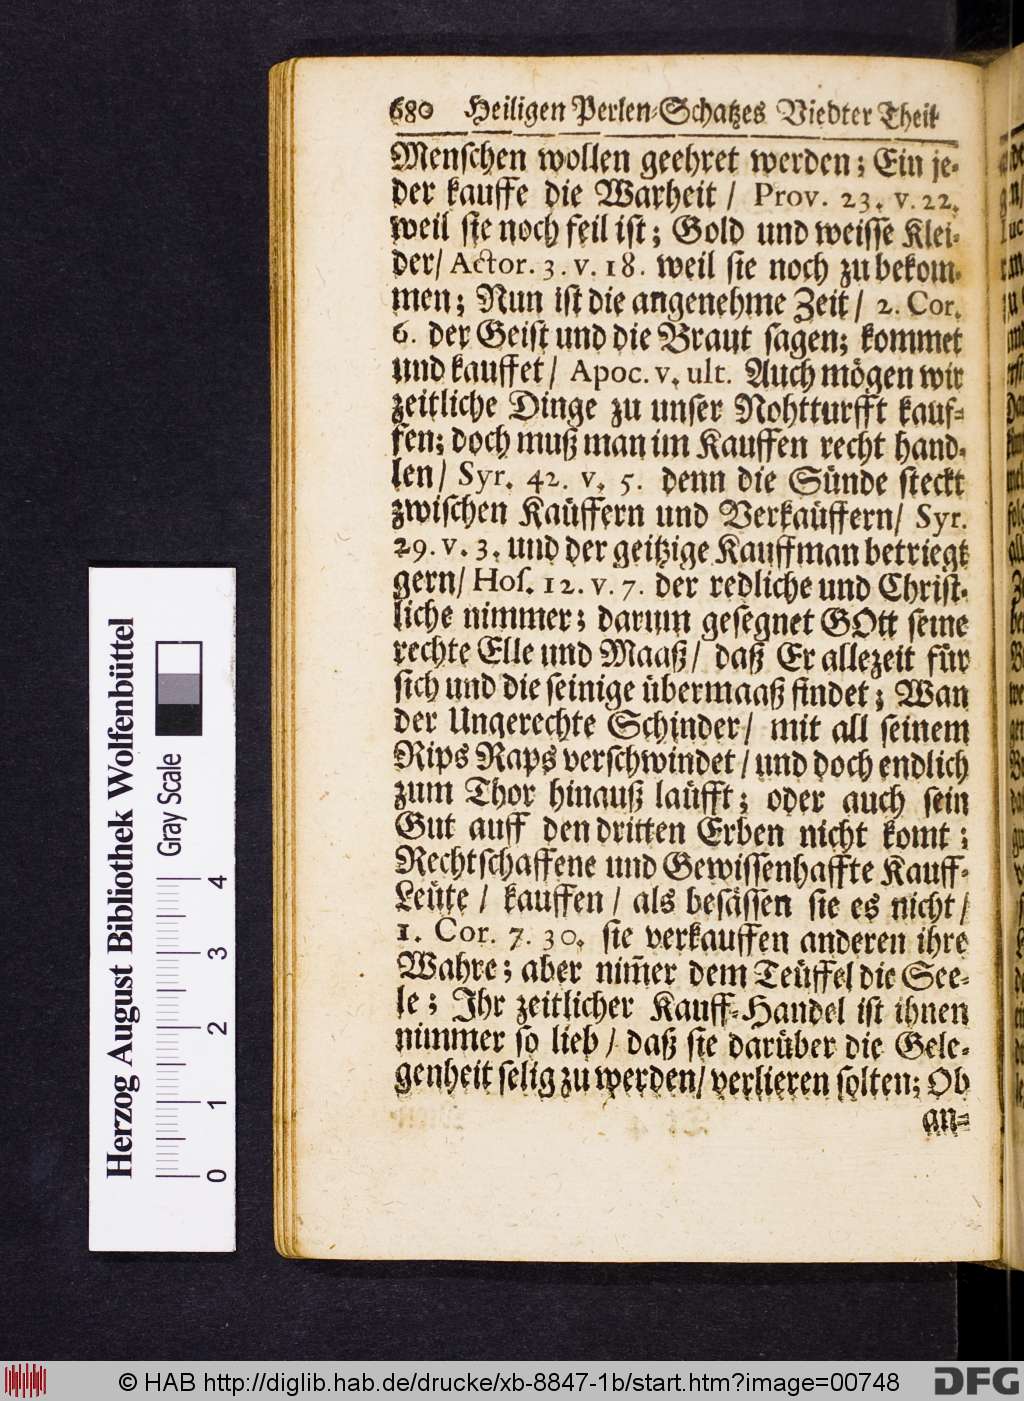 680 Heiligen Perlen-Schatzes Viedter Theil
Menschen wollen geehret werden; Ein je-
der kauffe die Warheit / Prov. 23. v. 22.
weil sie noch feil ist; Gold und weisse Klei-
der/ Actor. 3. v. 18. weil sie noch zu bekom-
men; Nun ist die angenehme Zeit / 2. Cor.
6. der Geist und die Braut sagen; kommet
und kauffet / Apoc. v. ult. Auch mögen wir
zeitliche Dinge zu unser Nohtturfft kauf-
fen; doch muß man im Kauffen recht hand-
len/ Syr. 42. v. 5. denn die Sünde steckt
zwischen Kaüffern und Verkaüffern/ Syr.
29. v. 3. und der geitzige Kauffman betriegt
gern/ Hos. 12. v. 7. der redliche und Christ-
liche nimmer; darum gesegnet GOtt seine
rechte Elle und Maaß/ daß Er allezeit für
sich und die seinige übermaaß findet; Wan
der Ungerechte Schinder/ mit all seinem
Rips Raps verschwindet / und doch endlich
zum Thor hinauß laüfft; oder auch sein
Gut auff den dritten Erben nicht komt;
Rechtschaffene und Gewissenhaffte Kauff-
Leüte / kauffen / als besässen sie es nicht /
1. Cor. 7. 30. sie verkauffen anderen ihre
Wahre; aber nim̃er dem Teüffel die See-
le; Ihr zeitlicher Kauff-Handel ist ihnen
nimmer so lieb / daß sie darüber die Gele-
genheit selig zu werden/ verlieren solten; Ob
an-
Herzog August Bibliothek Wolfenbüttel
Gray Scale
0 1 2 3 4
© HAB http://diglib.hab.de/drucke/xb-8847-1b/start.htm?image=00748
DFG